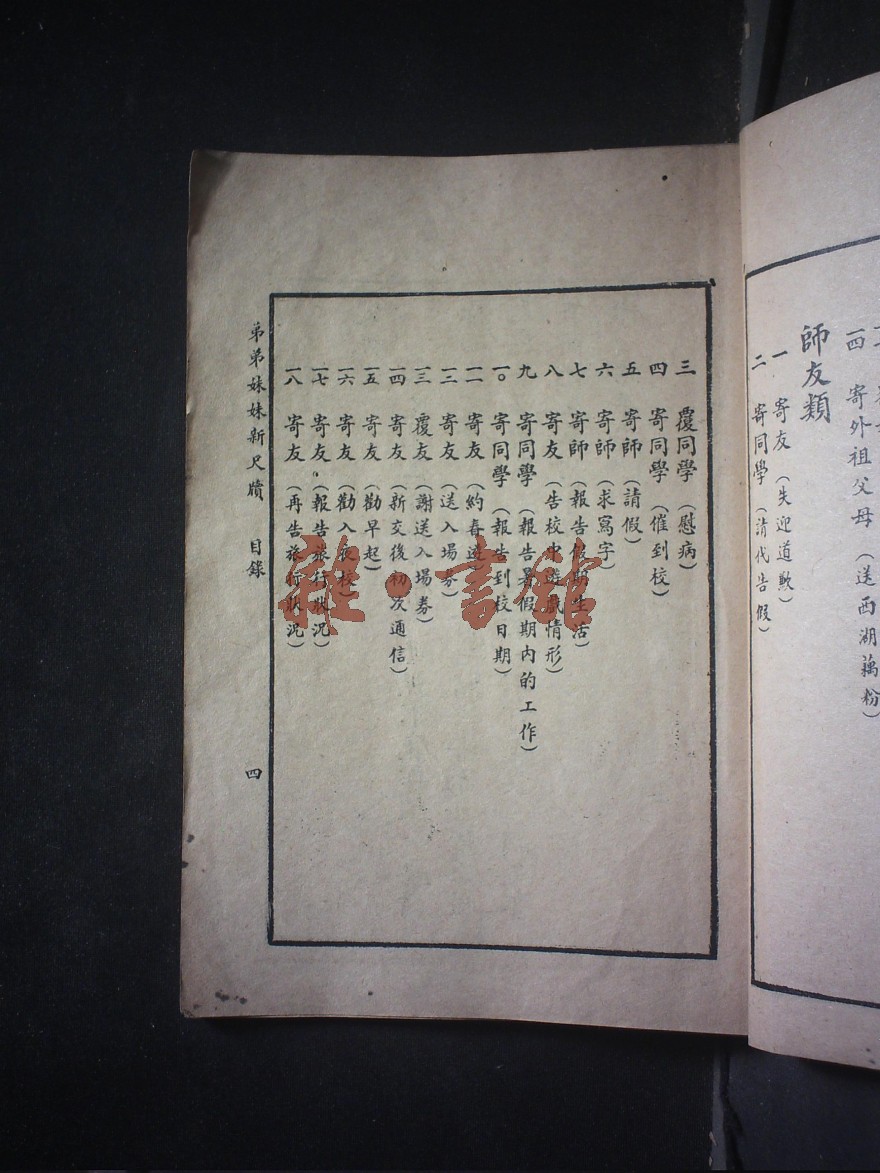 四 寄外祖父母（送西湖藕粉）
師友類
一 寄友（失迎道歉）
二 寄同學（請代告假）
三 覆同學（慰病）
四 寄同學（催到校）
五 寄師（請假）
六 寄師（求寫字）
七 寄師（報告假期生活）
八 寄友（告校中遊戲情形）
九 寄同學（報告暑假期內的工作）
一〇 寄同學（報告到校日期）
一一 寄友（約春遊）
一二 寄友（送入場券）
一三 覆友（謝送入場券）
一四 寄友（新交後初次通信）
一五 寄友（勸早起）
一六 寄友（勸入夜校）
一七 寄友（報告旅行狀況）
一八 寄友（再告旅行狀況）
弟弟妹妹新尺牘 目錄 四
雜·書館